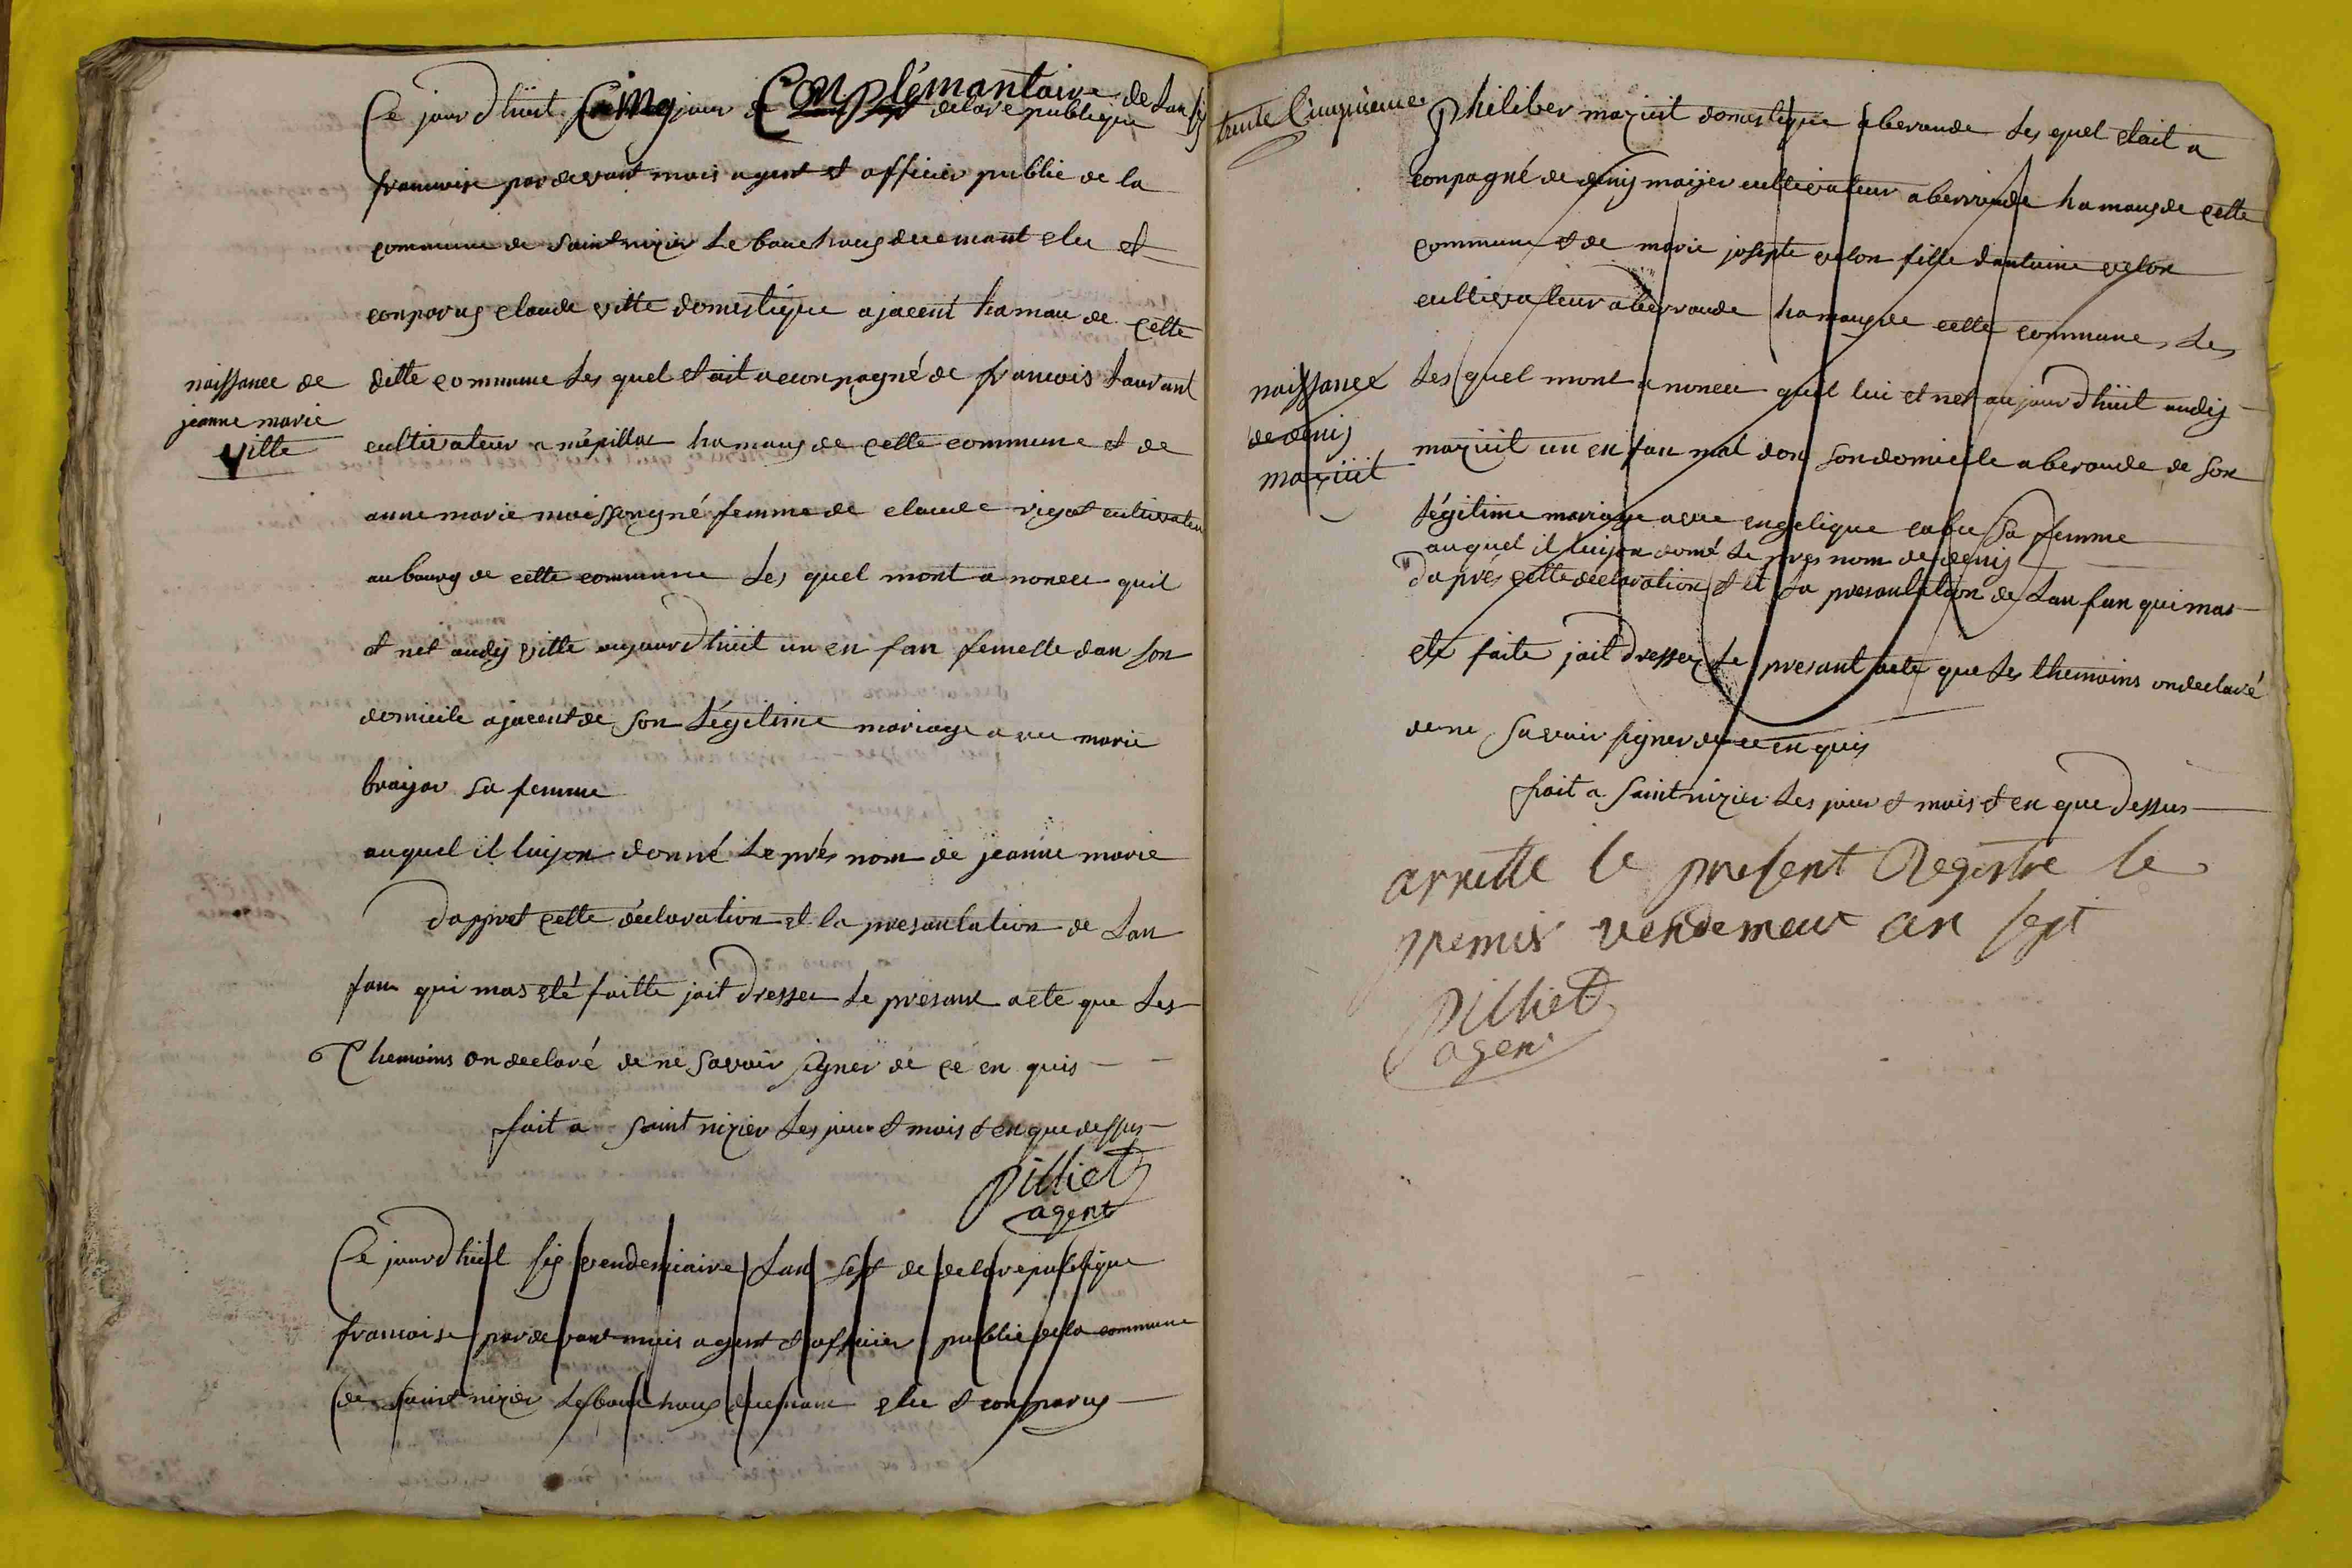 Ce jourd'huit Cinq jour de Conplémantaire de Lan six
delarepublique
francoise pardevant mois agent et officier public de la
commune de Saint nizier Le bouchoux duemant elu et
conparus claude vitte domestique a jacent hamau de cette
naissance de
jeanne marie
vitte
ditte commune Les quel etait aconpagné de francois Laurant
cultivateur a mépillat hamaus de cette commune et de
anne marie moissonyné femme de claude rigot cultivateur
au bourg de cette commune Les quel mont a noncer quil
et net audis vitte aujourd'huit un en fan femelle dan son
domicile a jacent de son Légitime mariage avec marie
braijar sa femme
auquel il luijon donné Le prés nom de jeanne marie
Dappret cette déclaration et la presantation de Lan
fan qui mas eté faitte jait Dresser Le presant acte que Les
Themoins on declaré de ne savoir signer de ce en quis
fait a saint nizier Les jour et mois et en que dessus
Pilliet
agent
Ce jourd'huit six vendemiaire Lan sept de delarepublique
francoise pardevant mois agent et officier public dela commune
de saint nizier Lebouchoux duemant elu et conparus
trente Cinquieme
Philiber mazuit domestique a beroude Les quel etait a
conpagné de denis moijer cultivateur a beroude hamaus de cette
commune et de marie josepte velon fille dantoine velon
cultivateur a beroude hamaus de cette commune, Les
naissance
de denis
mazuit
Les quel mont a noncer quil lui et net aujourd'huit audis
mazuit un en fan mal don son domicile a beroude de son
Légitime mariage avec engelique cabu sa femme
auquel il luijon doné Le pres nom de denis
Daprés cette declaration et la presantation de Lan fan qui mas
eté faite jait Dresser Le presant acte que Les themoins ondeclaré
de ne savoir signer de ce en quis
fait a saint nizier Les jour et mois et en que Dessus
arrette le present Registre le
premier vendemeur an sept
Pilliet
agen